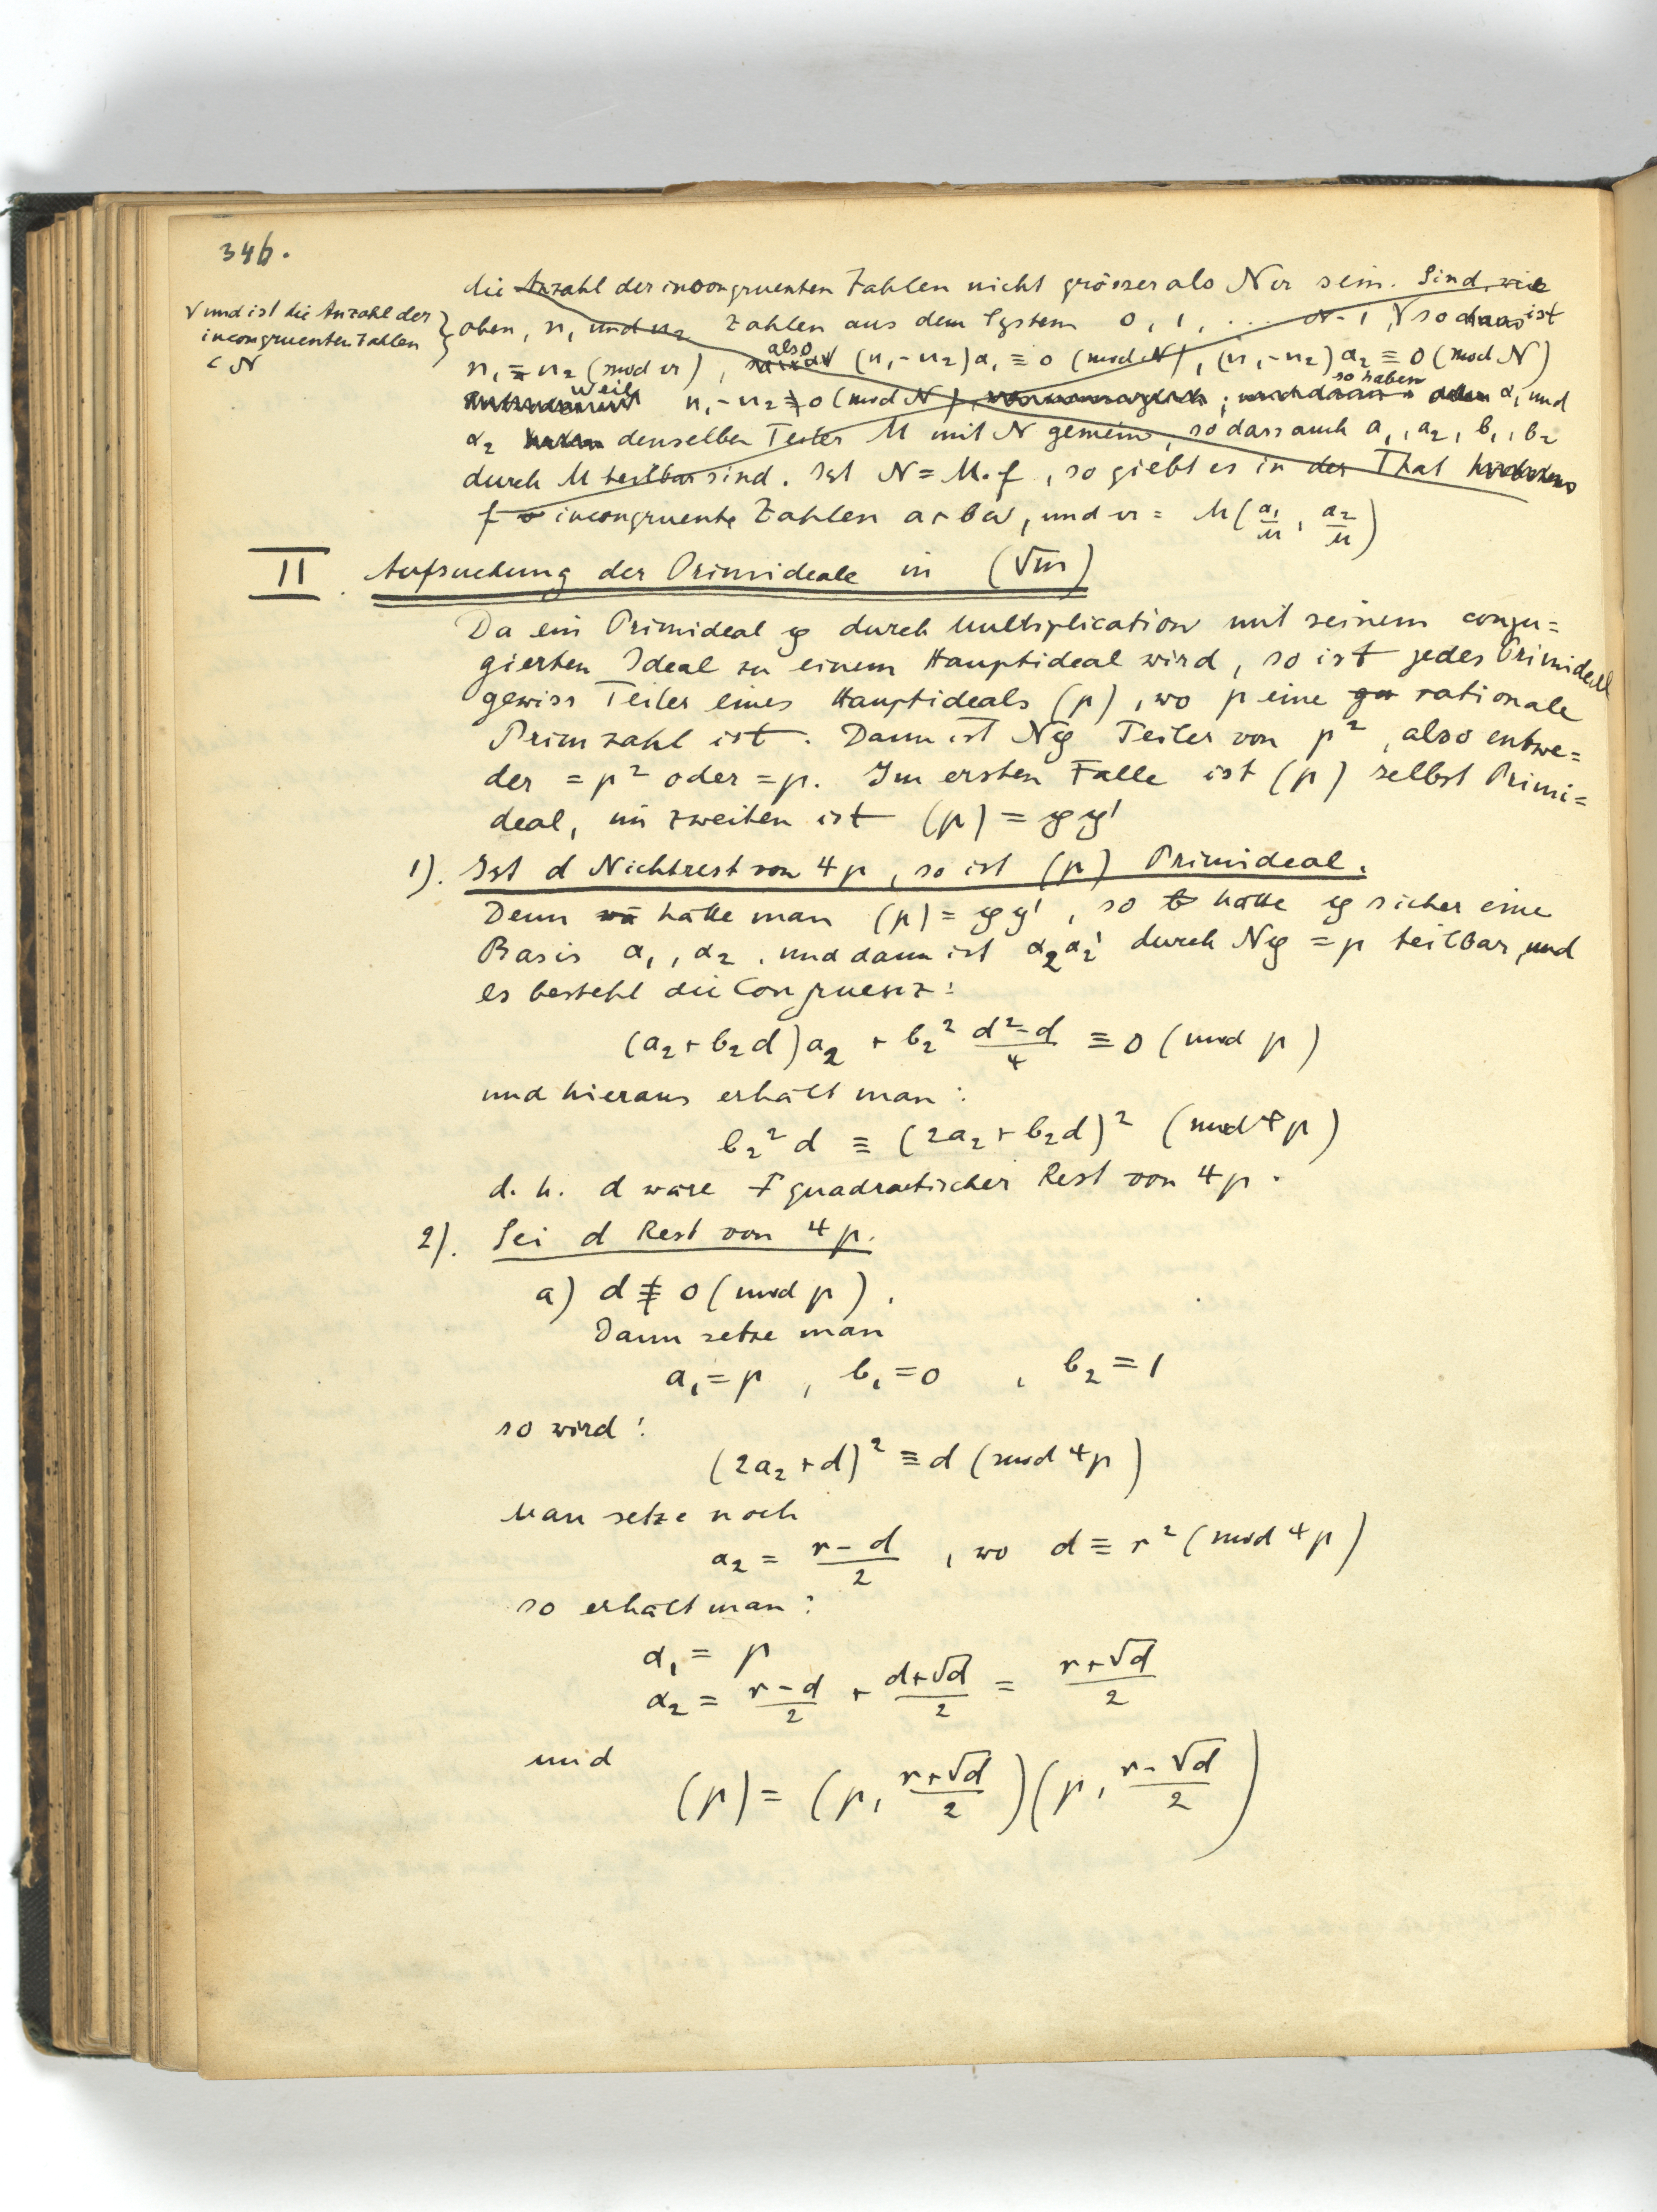 346.
√ und ist die Anzahl der
incongruenten Zahlen
< N
die Anzahl der incongruenten Zahlen nicht grösser als N𝔞 sein. Sind, wie
oben, n₁ und n₂ Zahlen aus dem System 0, 1, ... N-1, √ so ist
n₁ ≡ n₂ (mod 𝔞), also (n₁-n₂)α₁ ≡ 0 (mod N), (n₁-n₂)α₂ ≡ 0 (mod N)
weil n₁-n₂ ≢ 0 (mod N), so haben α₁ und
α₂ denselben Teiler M mit N gemein, so dass auch a₁, a₂, b₁, b₂
durch M teilbar sind. Ist N = M·f, so giebt es in der That
f incongruente Zahlen a+bω, und 𝔞 = M(α₁/M, α₂/M)
II. Aufsuchung der Primideale in (√m)
Da ein Primideal 𝔭 durch Multiplication mit seinem conju=
gierten Ideal zu einem Hauptideal wird, so ist jedes Primideal
gewiss Teiler eines Hauptideals (p), wo p eine rationale
Primzahl ist. Dann ist N𝔭 Teiler von p², also entwe=
der = p² oder = p. Im ersten Falle ist (p) selbst Primi=
deal, im zweiten ist (p) = 𝔭𝔭'
1). Ist d Nichtrest von 4p, so ist (p) Primideal.
Denn hätte man (p) = 𝔭𝔭', so hätte 𝔭 sicher eine
Basis α₁, α₂, und dann ist α₂α₂' durch N𝔭 = p teilbar, und
es besteht die Congruenz:
(a₂+b₂d)a₂ + b₂² (d²-d)/4 ≡ 0 (mod p)
und hieraus erhält man:
b₂²d ≡ (2a₂+b₂d)² (mod 4p)
d. h. d wäre quadratischer Rest von 4p.
2). Sei d Rest von 4p.
a) d ≢ 0 (mod p).
Dann setze man
a₁ = p, b₁ = 0, b₂ = 1
so wird:
(2a₂+d)² ≡ d (mod 4p)
Man setze noch
a₂ = (r-d)/2, wo d ≡ r² (mod 4p)
so erhält man:
α₁ = p
α₂ = (r-d)/2 + (d+√d)/2 = (r+√d)/2
und
(p) = (p, (r+√d)/2)(p, (r-√d)/2)